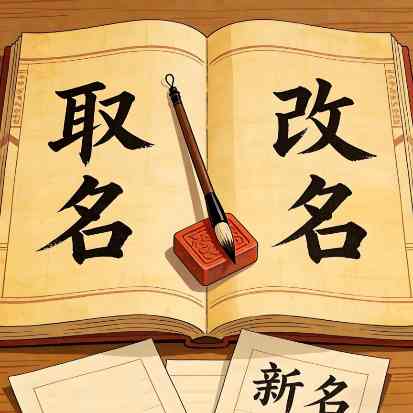 取名
改名
新名